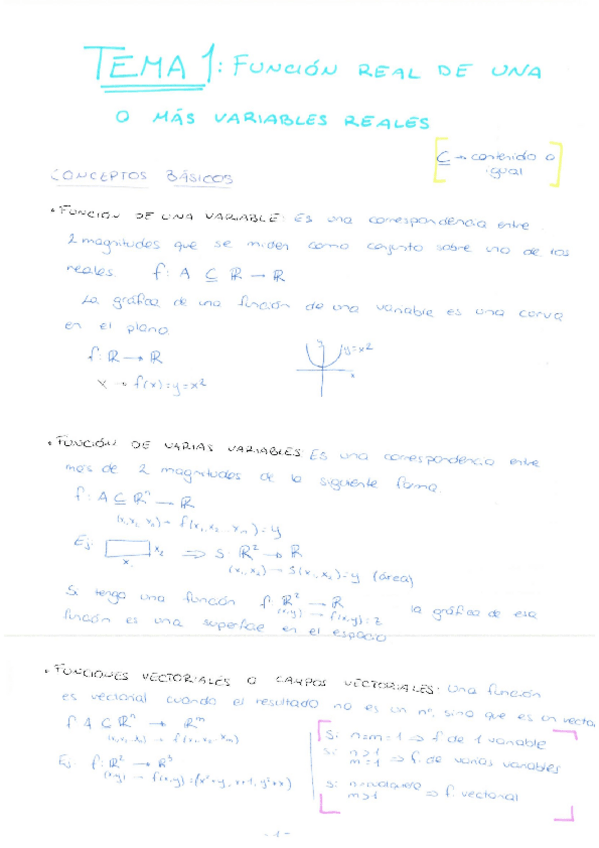 TEMA 1: FUNCIÓN REAL DE UNA
O MÁS VARIABLES REALES
⊆ → contenido o
igual
CONCEPTOS BÁSICOS
• FUNCIÓN DE UNA VARIABLE: Es una correspondencia entre
2 magnitudes que se miden como conjunto sobre uno de los
reales. f: A ⊆ ℝ → ℝ
La gráfica de una función de una variable es una curva
en el plano.
f: ℝ → ℝ
x → f(x)=y=x²
y
y=x²
x
• FUNCIÓN DE VARIAS VARIABLES Es una correspondencia entre
más de 2 magnitudes de la siguiente forma.
f: A ⊆ ℝⁿ → ℝ
(x₁, x₂, xₙ) → f(x₁, x₂ ... xₘ)=y
Ej: x₂ ⇒ S: ℝ² → ℝ
x₁ (x₁, x₂) → S(x₁, x₂)=y (área)
Si tengo una función f: ℝ² → ℝ la gráfica de esa
(x,y) → f(x,y)=z
función es una superficie en el espacio
• FUNCIONES VECTORIALES O CAMPOS VECTORIALES: Una función
es vectorial cuando el resultado no es un nº, sino que es un vector
f A ⊆ ℝⁿ → ℝᵐ
Ej: f: ℝ² → ℝ³
(x,y) → f(x,y)=(x²+y, x+1, y²+x)
Si n=m=1 ⇒ f de 1 variable
Si n>1
m=1 ⇒ f. de varias variables
Si n=cualquiera
m>1 ⇒ f. vectorial
-1-